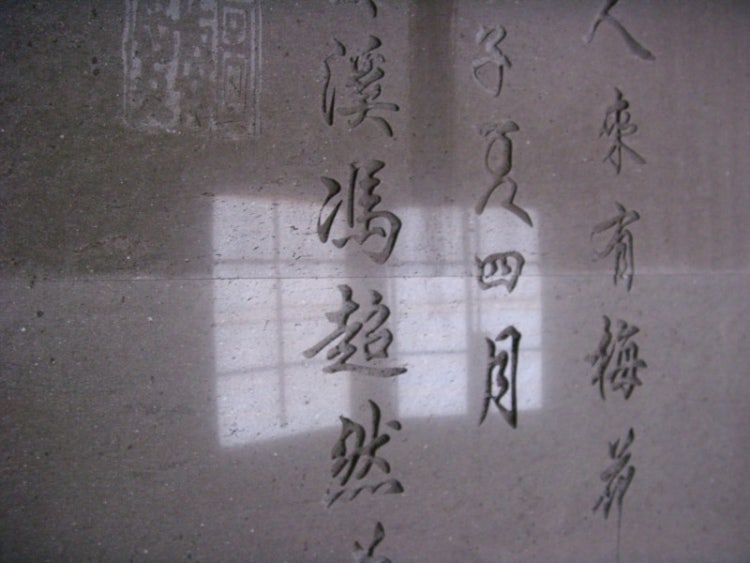 人來有梅花
子夏四月
溪馮超然